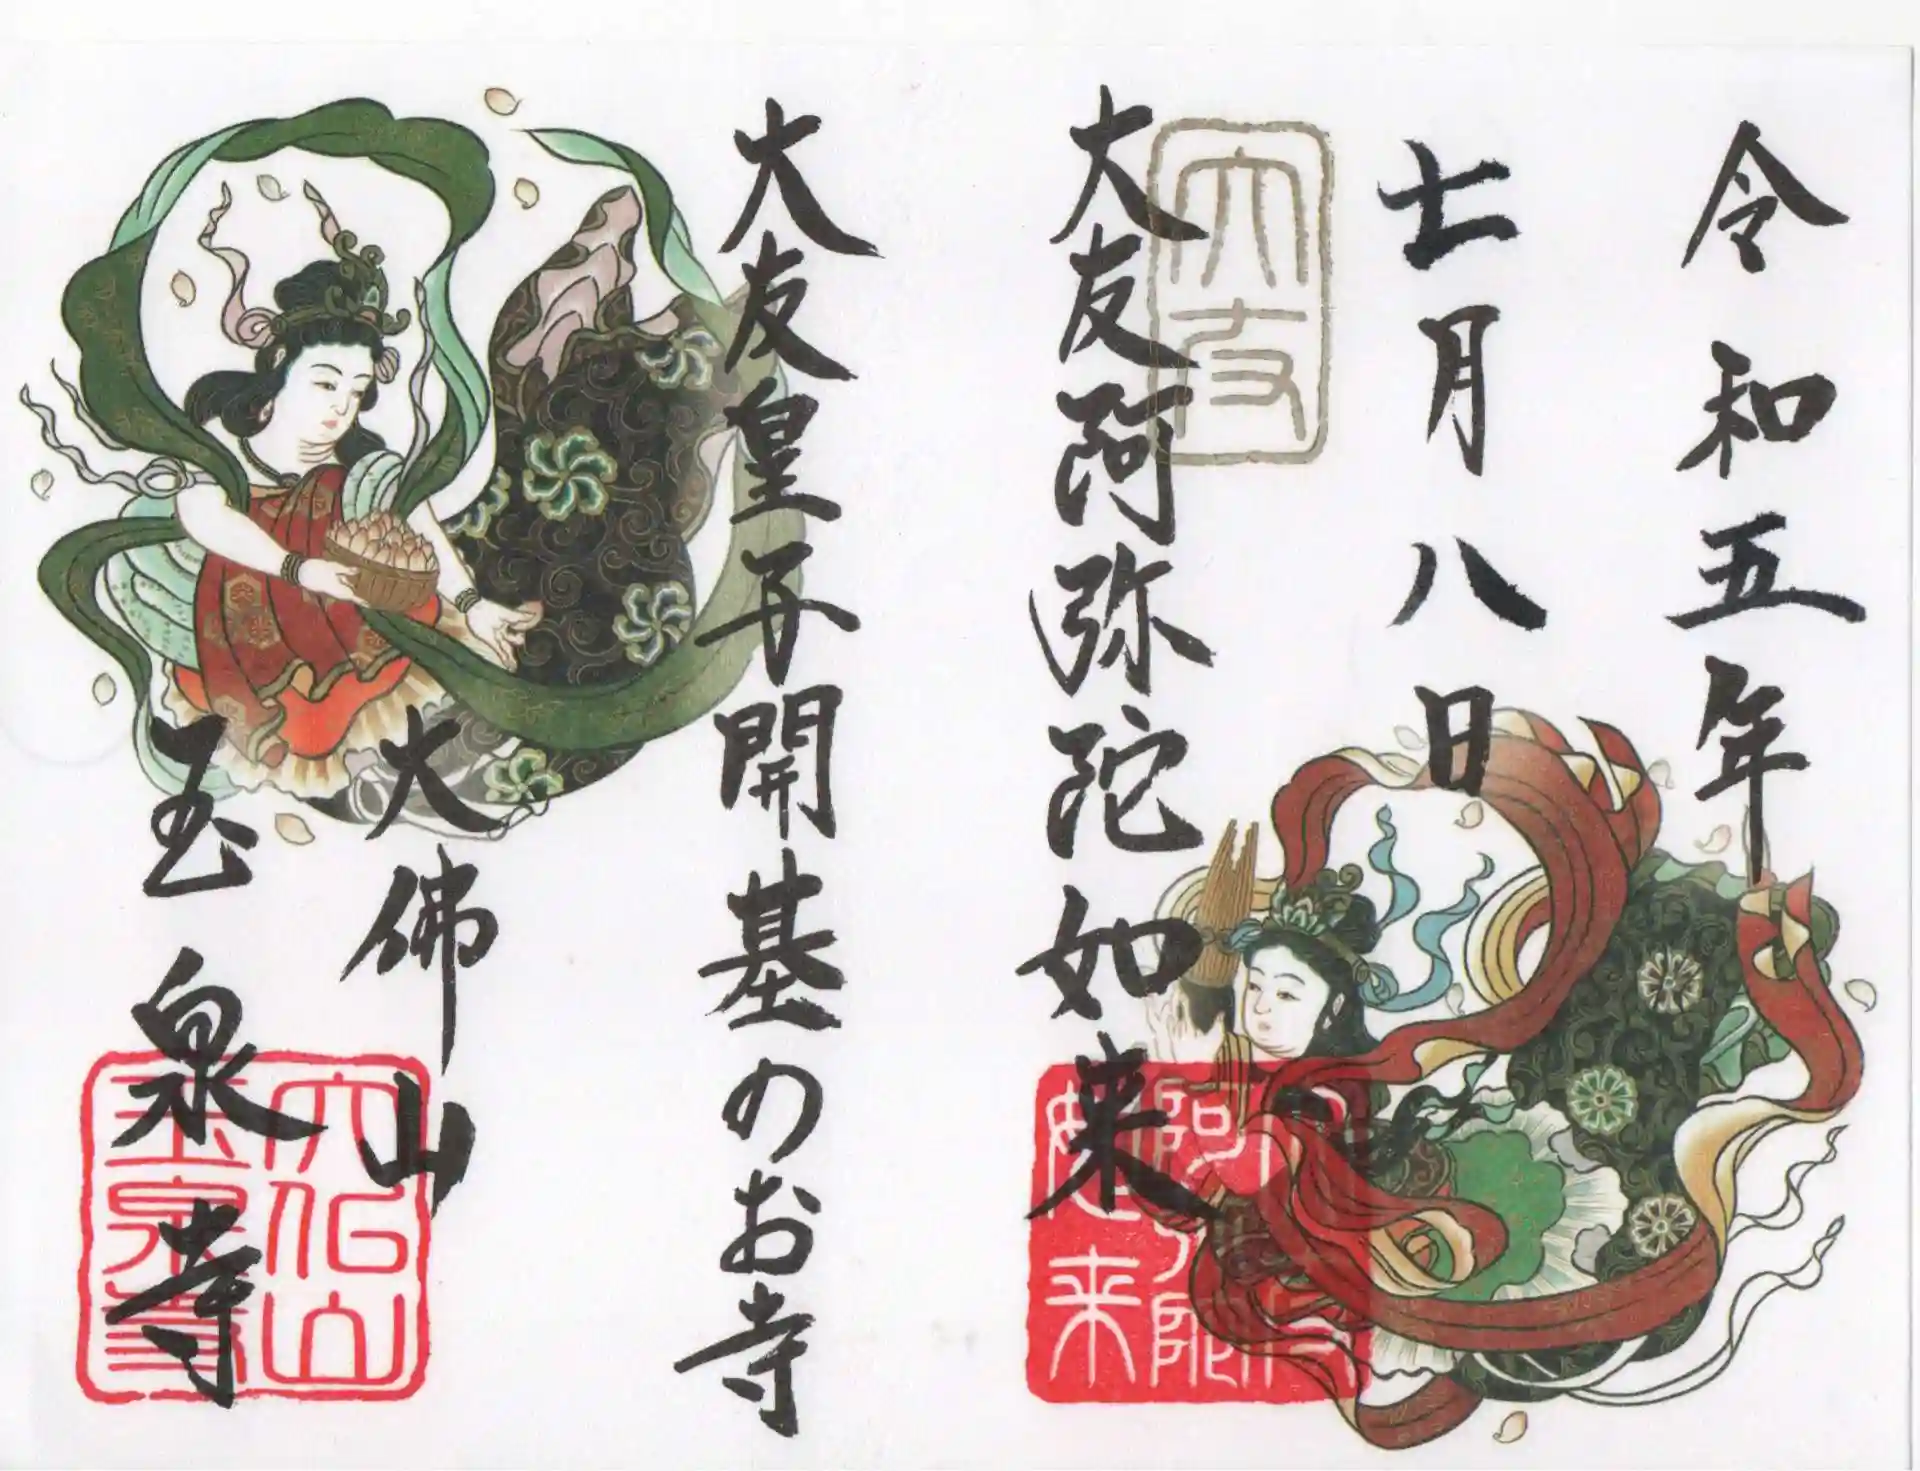 令和五年
七月八日
大友
大友阿弥陀如来
阿弥陀如来
大友皇子開基のお寺
大佛山
玉泉寺
大仏山
玉泉寺